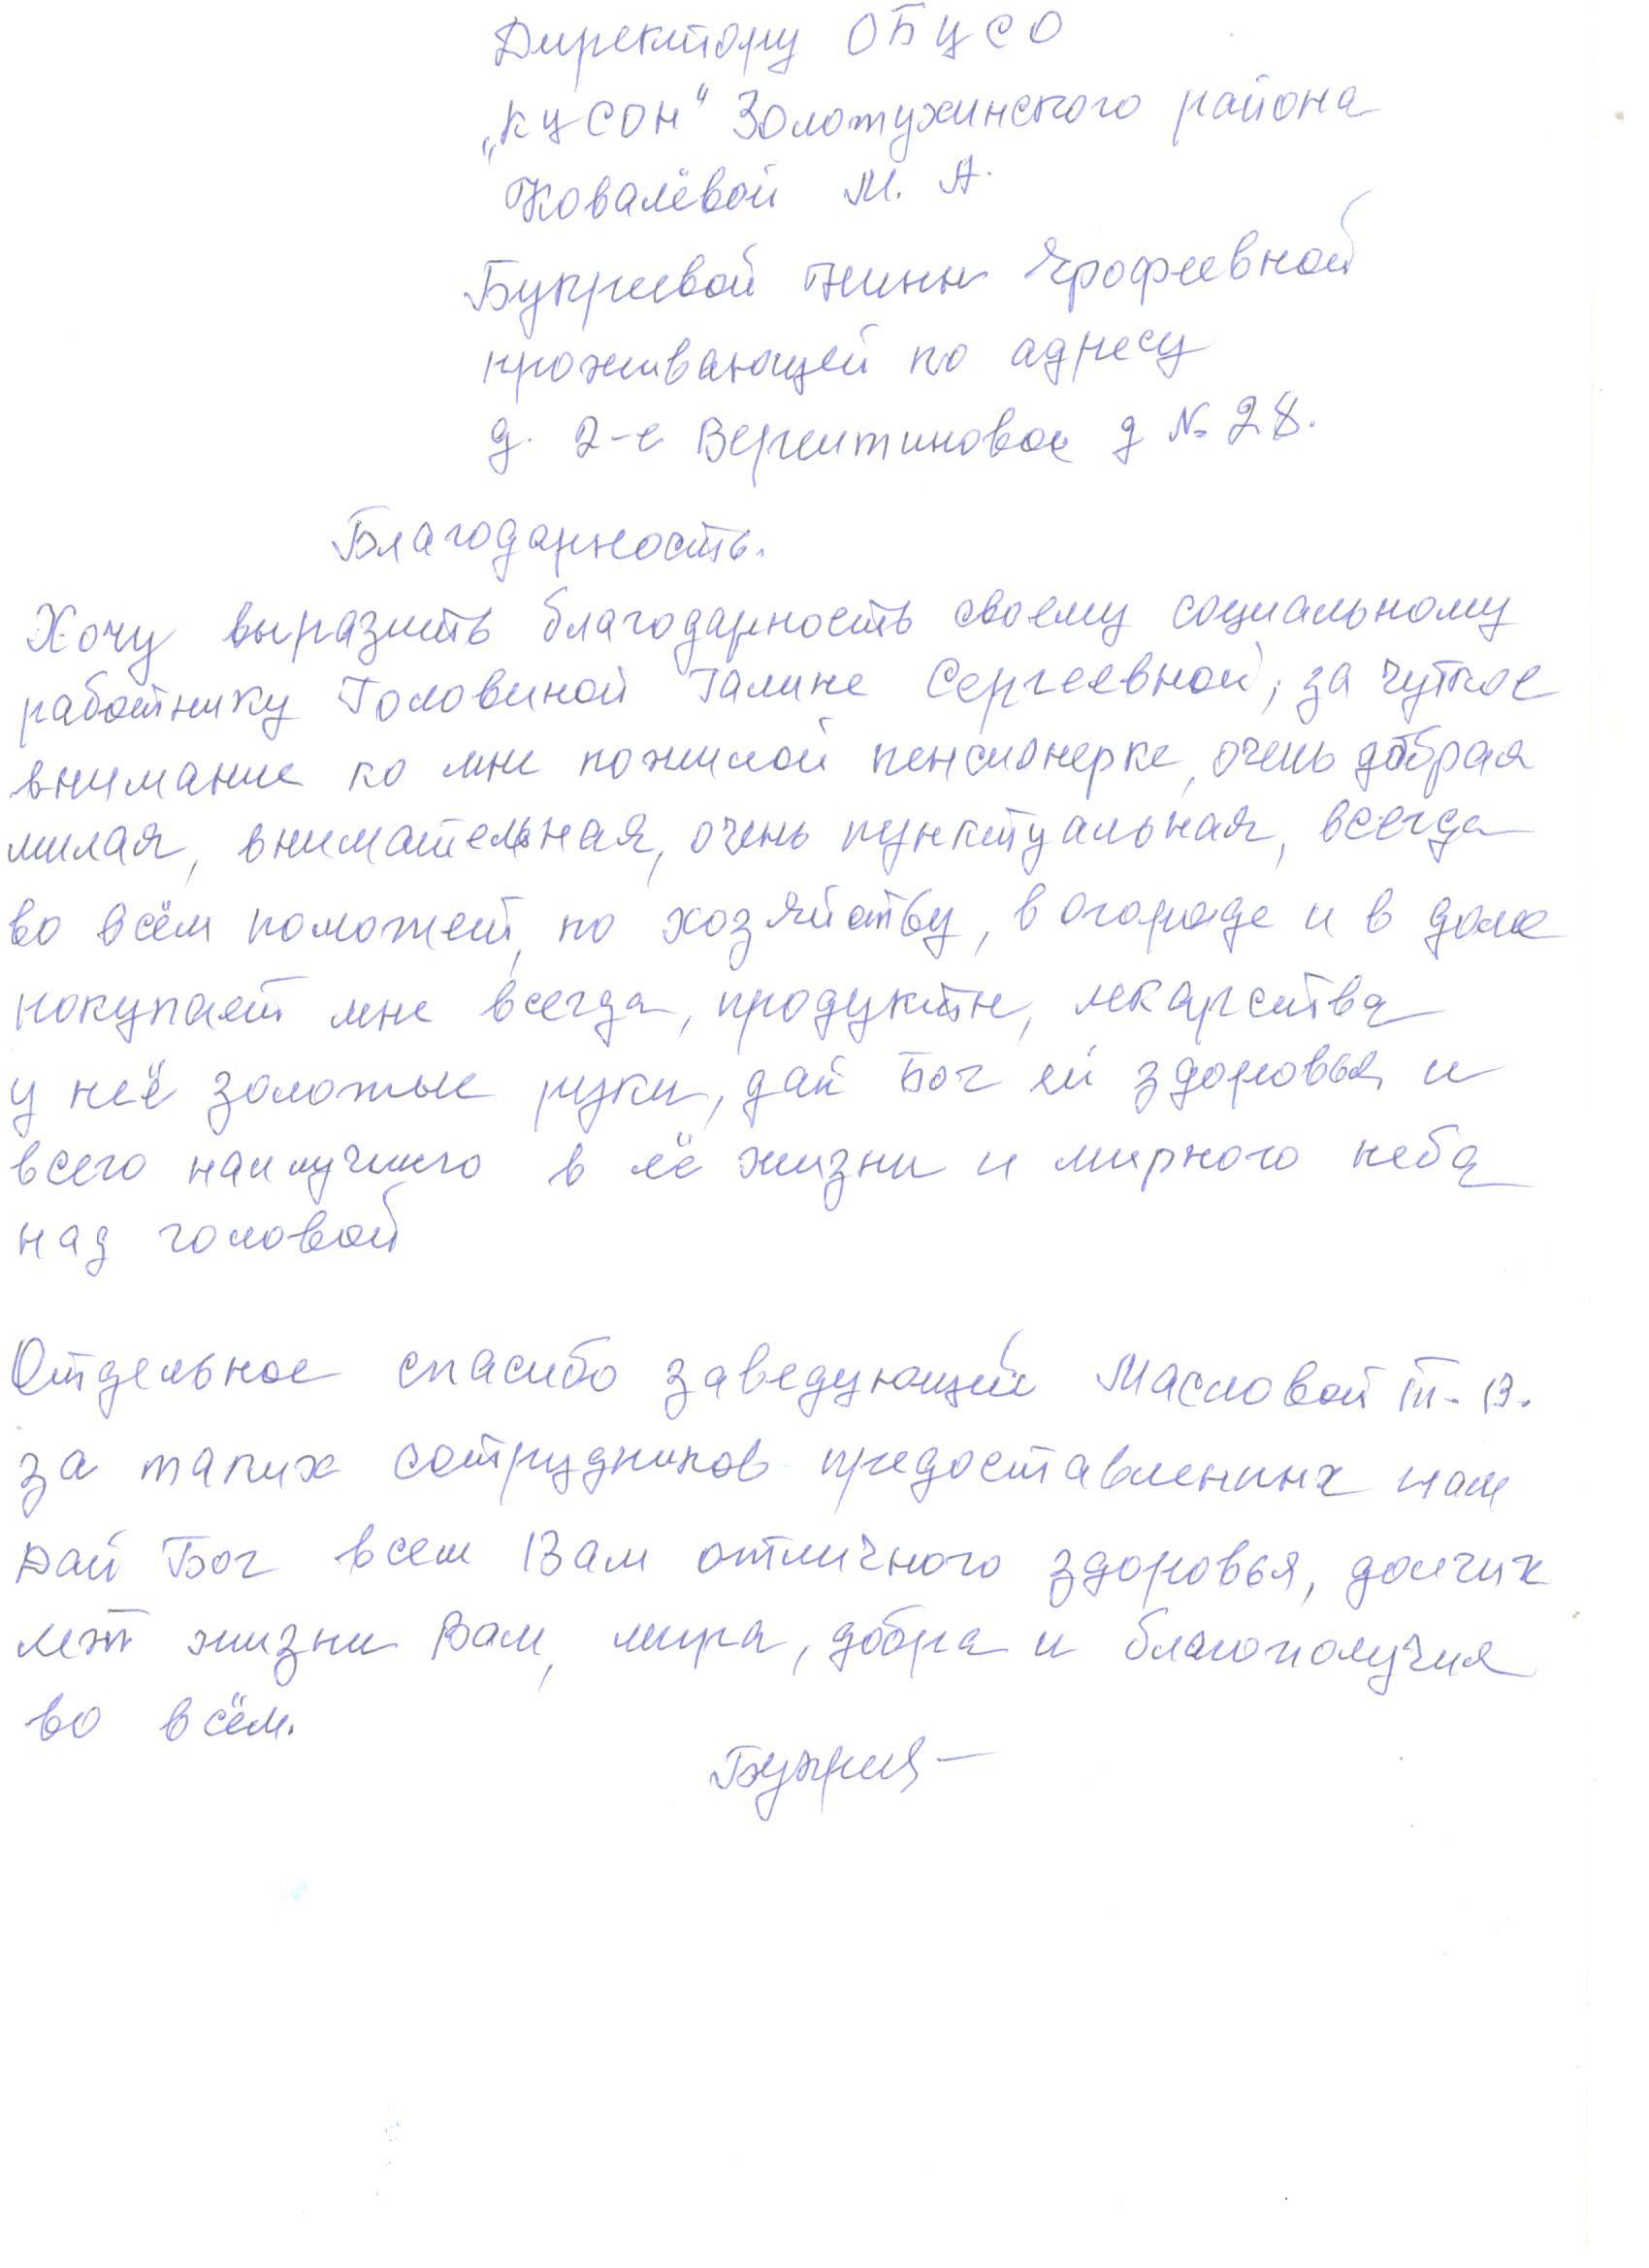 Директору ОБУСО
„КЦСОН" Золотухинского района
Ковалёвой М. А.
Букреевой Нины Ерофеевной
проживающей по адресу
д. 2-е Воротиновое д № 28.
Благодарность.
Хочу выразить благодарность своему социальному
работнику Головиной Галине Сергеевной, за чуткое
внимание ко мне пожилой пенсионерке, очень добрая
милая, внимательная, очень пунктуальная, всегда
во всём поможет, по хозяйству, в огороде и в доме
покупает мне всегда, продукты, лекарства
у неё золотые руки, дай Бог ей здоровья и
всего наилучшего в её жизни и мирного неба
над головой
Отдельное спасибо заведующей Масловой Т. В.
за таких сотрудников предоставленных нам
Дай Бог всем Вам отличного здоровья, долгих
лет жизни Вам, мира, добра и благополучия
во всём.